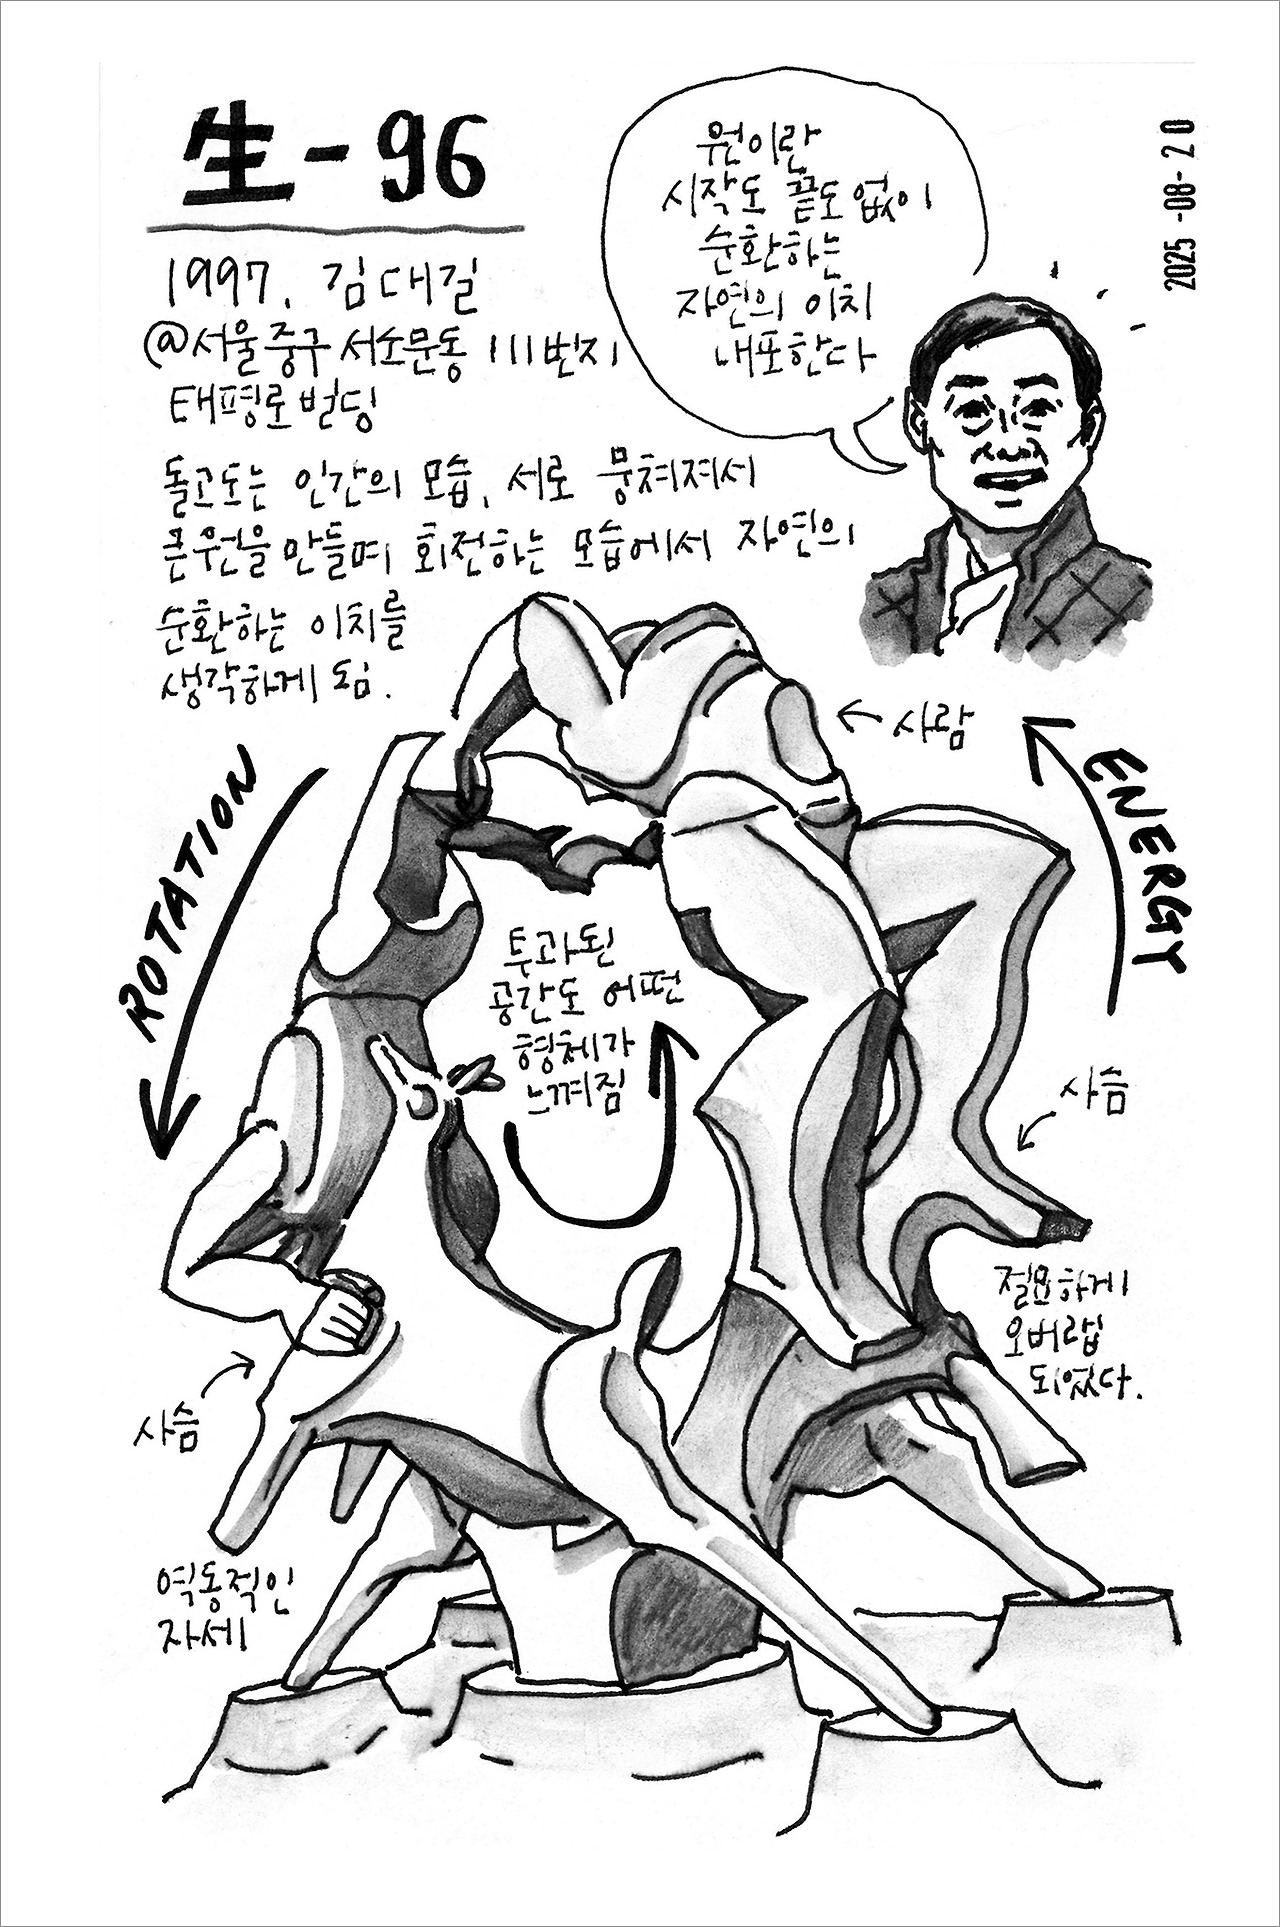 生-96
1997. 김대길
@서울중구 서소문동 111번지
태평로빌딩
돌고도는 인간의 모습, 서로 뭉쳐져서
큰원을 만들며 회전하는 모습에서 자연의
순환하는 이치를
생각하게 됨.
원이란
시작도 끝도 없이
순환하는
자연의 이치
내포한다
2025-08-20
←사람
ROTATION
ENERGY
투과된
공간도 어떤
형체가
느껴짐
사슴
절묘하게
오버랩
되었다.
사슴
역동적인
자세